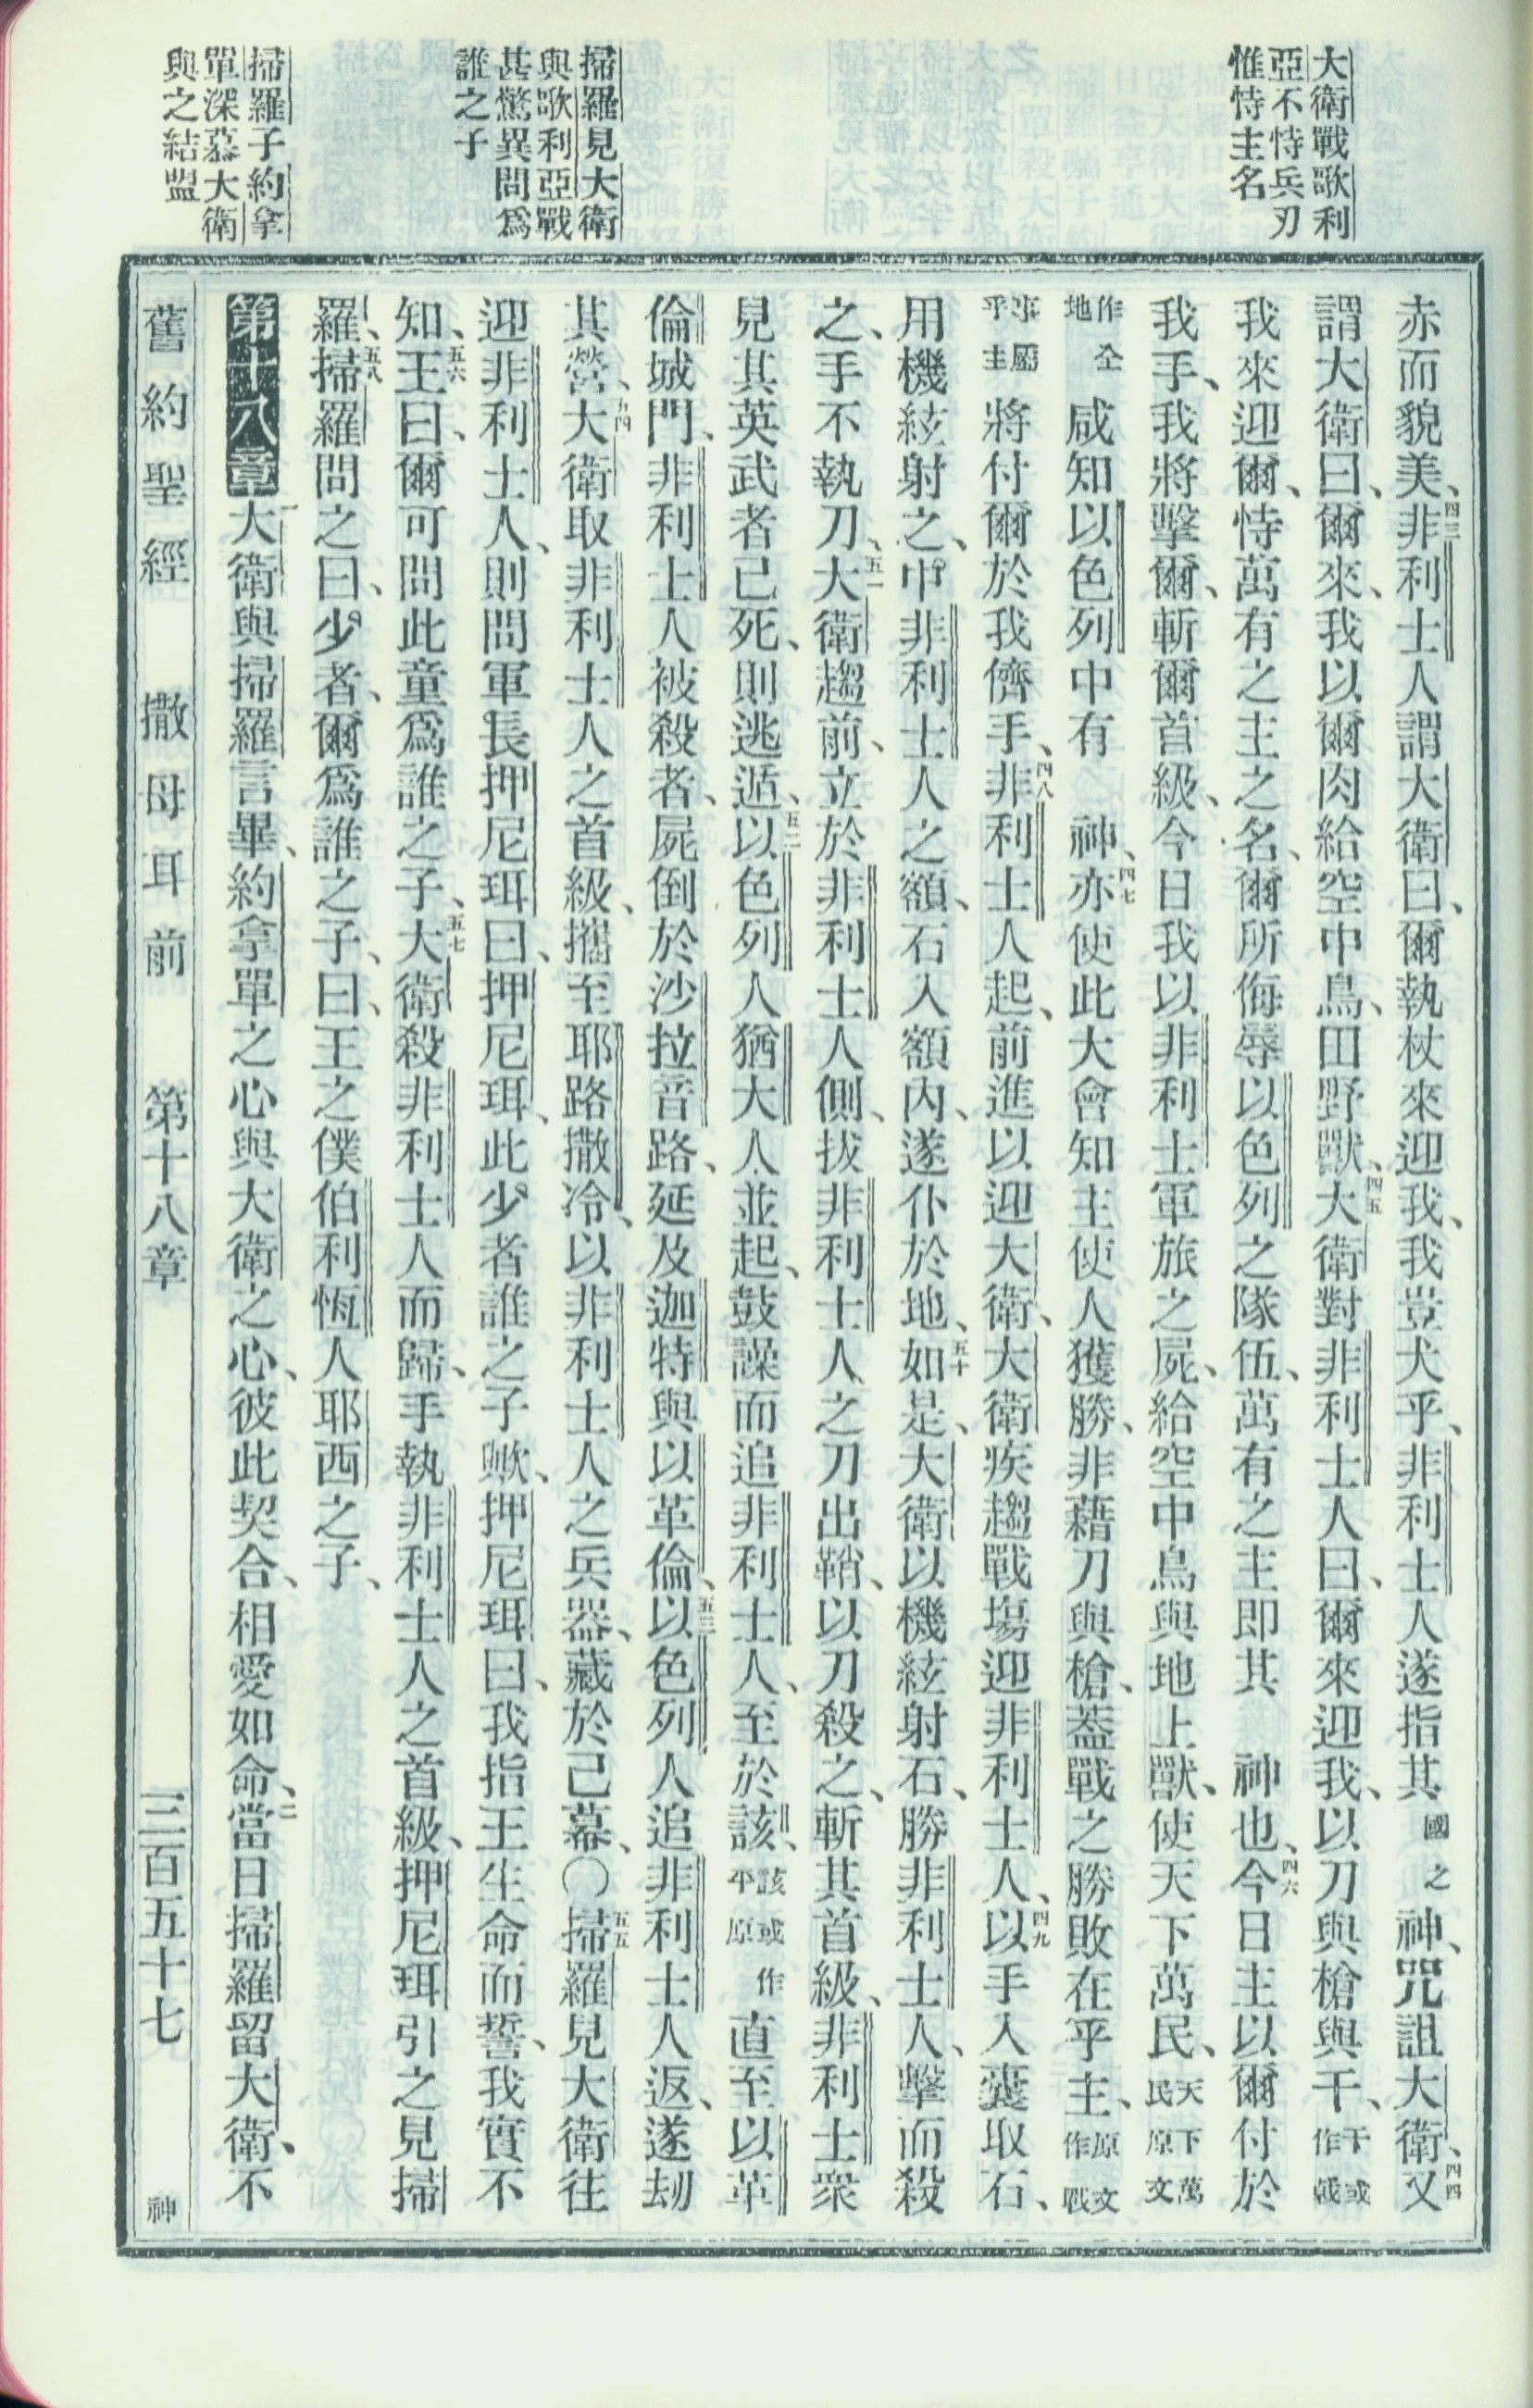 大衛戰歌利
亞不恃兵刃
惟恃主名
掃羅見大衛
與歌利亞戰
甚驚異問爲
誰之子
掃羅子約拿
單深慕大衛
與之結盟
赤而貌美、四三非利士人謂大衛曰、爾執杖來迎我、我豈犬乎、非利士人遂指其國之神、咒詛大衛、四四又
謂大衛曰、爾來、我以爾肉給空中鳥、田野獸、四五大衛對非利士人曰、爾來迎我、以刀與槍與干、干或作戟
我來迎爾、恃萬有之主之名、爾所侮辱以色列之隊伍、萬有之主即其 神也、四六今日主以爾付於
我手、我將擊爾、斬爾首級、今日我以非利士軍旅之屍、給空中鳥與地上獸、使天下萬民、天下萬民原文
作全地咸知以色列中有 神、四七亦使此大會知主使人獲勝、非藉刀與槍、蓋戰之勝敗在乎主、原文作戰
事屬乎主將付爾於我儕手、四八非利士人起、前進以迎大衛、大衛疾趨戰塲迎非利士人、四九以手入囊取石、
用機絃射之、中非利士人之額、石入額內、遂仆於地、五十如是、大衛以機絃射石、勝非利士人、擊而殺
之、手不執刀、五一大衛趨前、立於非利士人側、拔非利士人之刀出鞘、以刀殺之、斬其首級、非利士衆
見其英武者已死、則逃遁、五二以色列人猶大人並起、鼓譟而追非利士人、至於該、該或作平原直至以革
倫城門、非利士人被殺者、屍倒於沙拉音路、延及迦特與以革倫、五三以色列人追非利士人返、遂刼
其營、五四大衛取非利士人之首級、攜至耶路撒冷、以非利士人之兵器、藏於己幕、〇五五掃羅見大衛往
迎非利士人、則問軍長押尼珥曰、押尼珥、此少者誰之子歟、押尼珥曰、我指王生命而誓、我實不
知、五六王曰、爾可問此童爲誰之子、五七大衛殺非利士人而歸、手執非利士人之首級、押尼珥引之見掃
羅、五八掃羅問之曰、少者、爾爲誰之子、曰、王之僕伯利恆人耶西之子、
第十八章一大衛與掃羅言畢、約拿單之心與大衛之心、彼此契合、相愛如命、二當日掃羅留大衛、不
舊約聖經 撒母耳前 第十八章 三百五十七 神